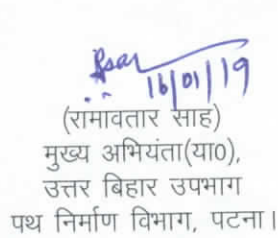 16/01/19
(रामावतार साह)
मुख्य अभियंता(या०),
उत्तर बिहार उपभाग
पथ निर्माण विभाग, पटना।